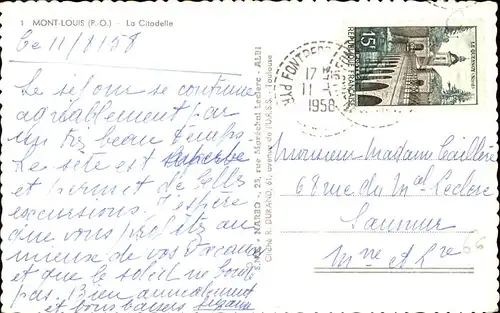 1 MONT-LOUIS (P.-O.) - La Citadelle
Ce 11/8/58
Le séjour se continue
agréablement par
un très beau temps
Le site est superbe
et permet de belles
excursions. J'espère
que vous profitez au
mieux de vos vacances
et que le soleil ne boude
pas. Bien amicalement
et bons baisers Suzanne
NARBO - 23, rue Maréchal Leclerc - ALBI
Cliché R. DURAND, 61, avenue de l'U.R.S.S. - Toulouse
FONTPEDR
17 H
11 - 8
1958
15F
REPUBLIQUE FRANCAISE
LE QUESNOY (NORD)
Monsieur Madame Caillère
68 rue du Mal Leclerc
Saumur
Mne et Lre
66